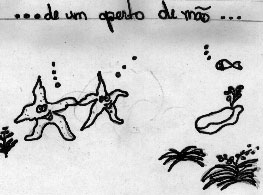 ...de um aperto de mão...